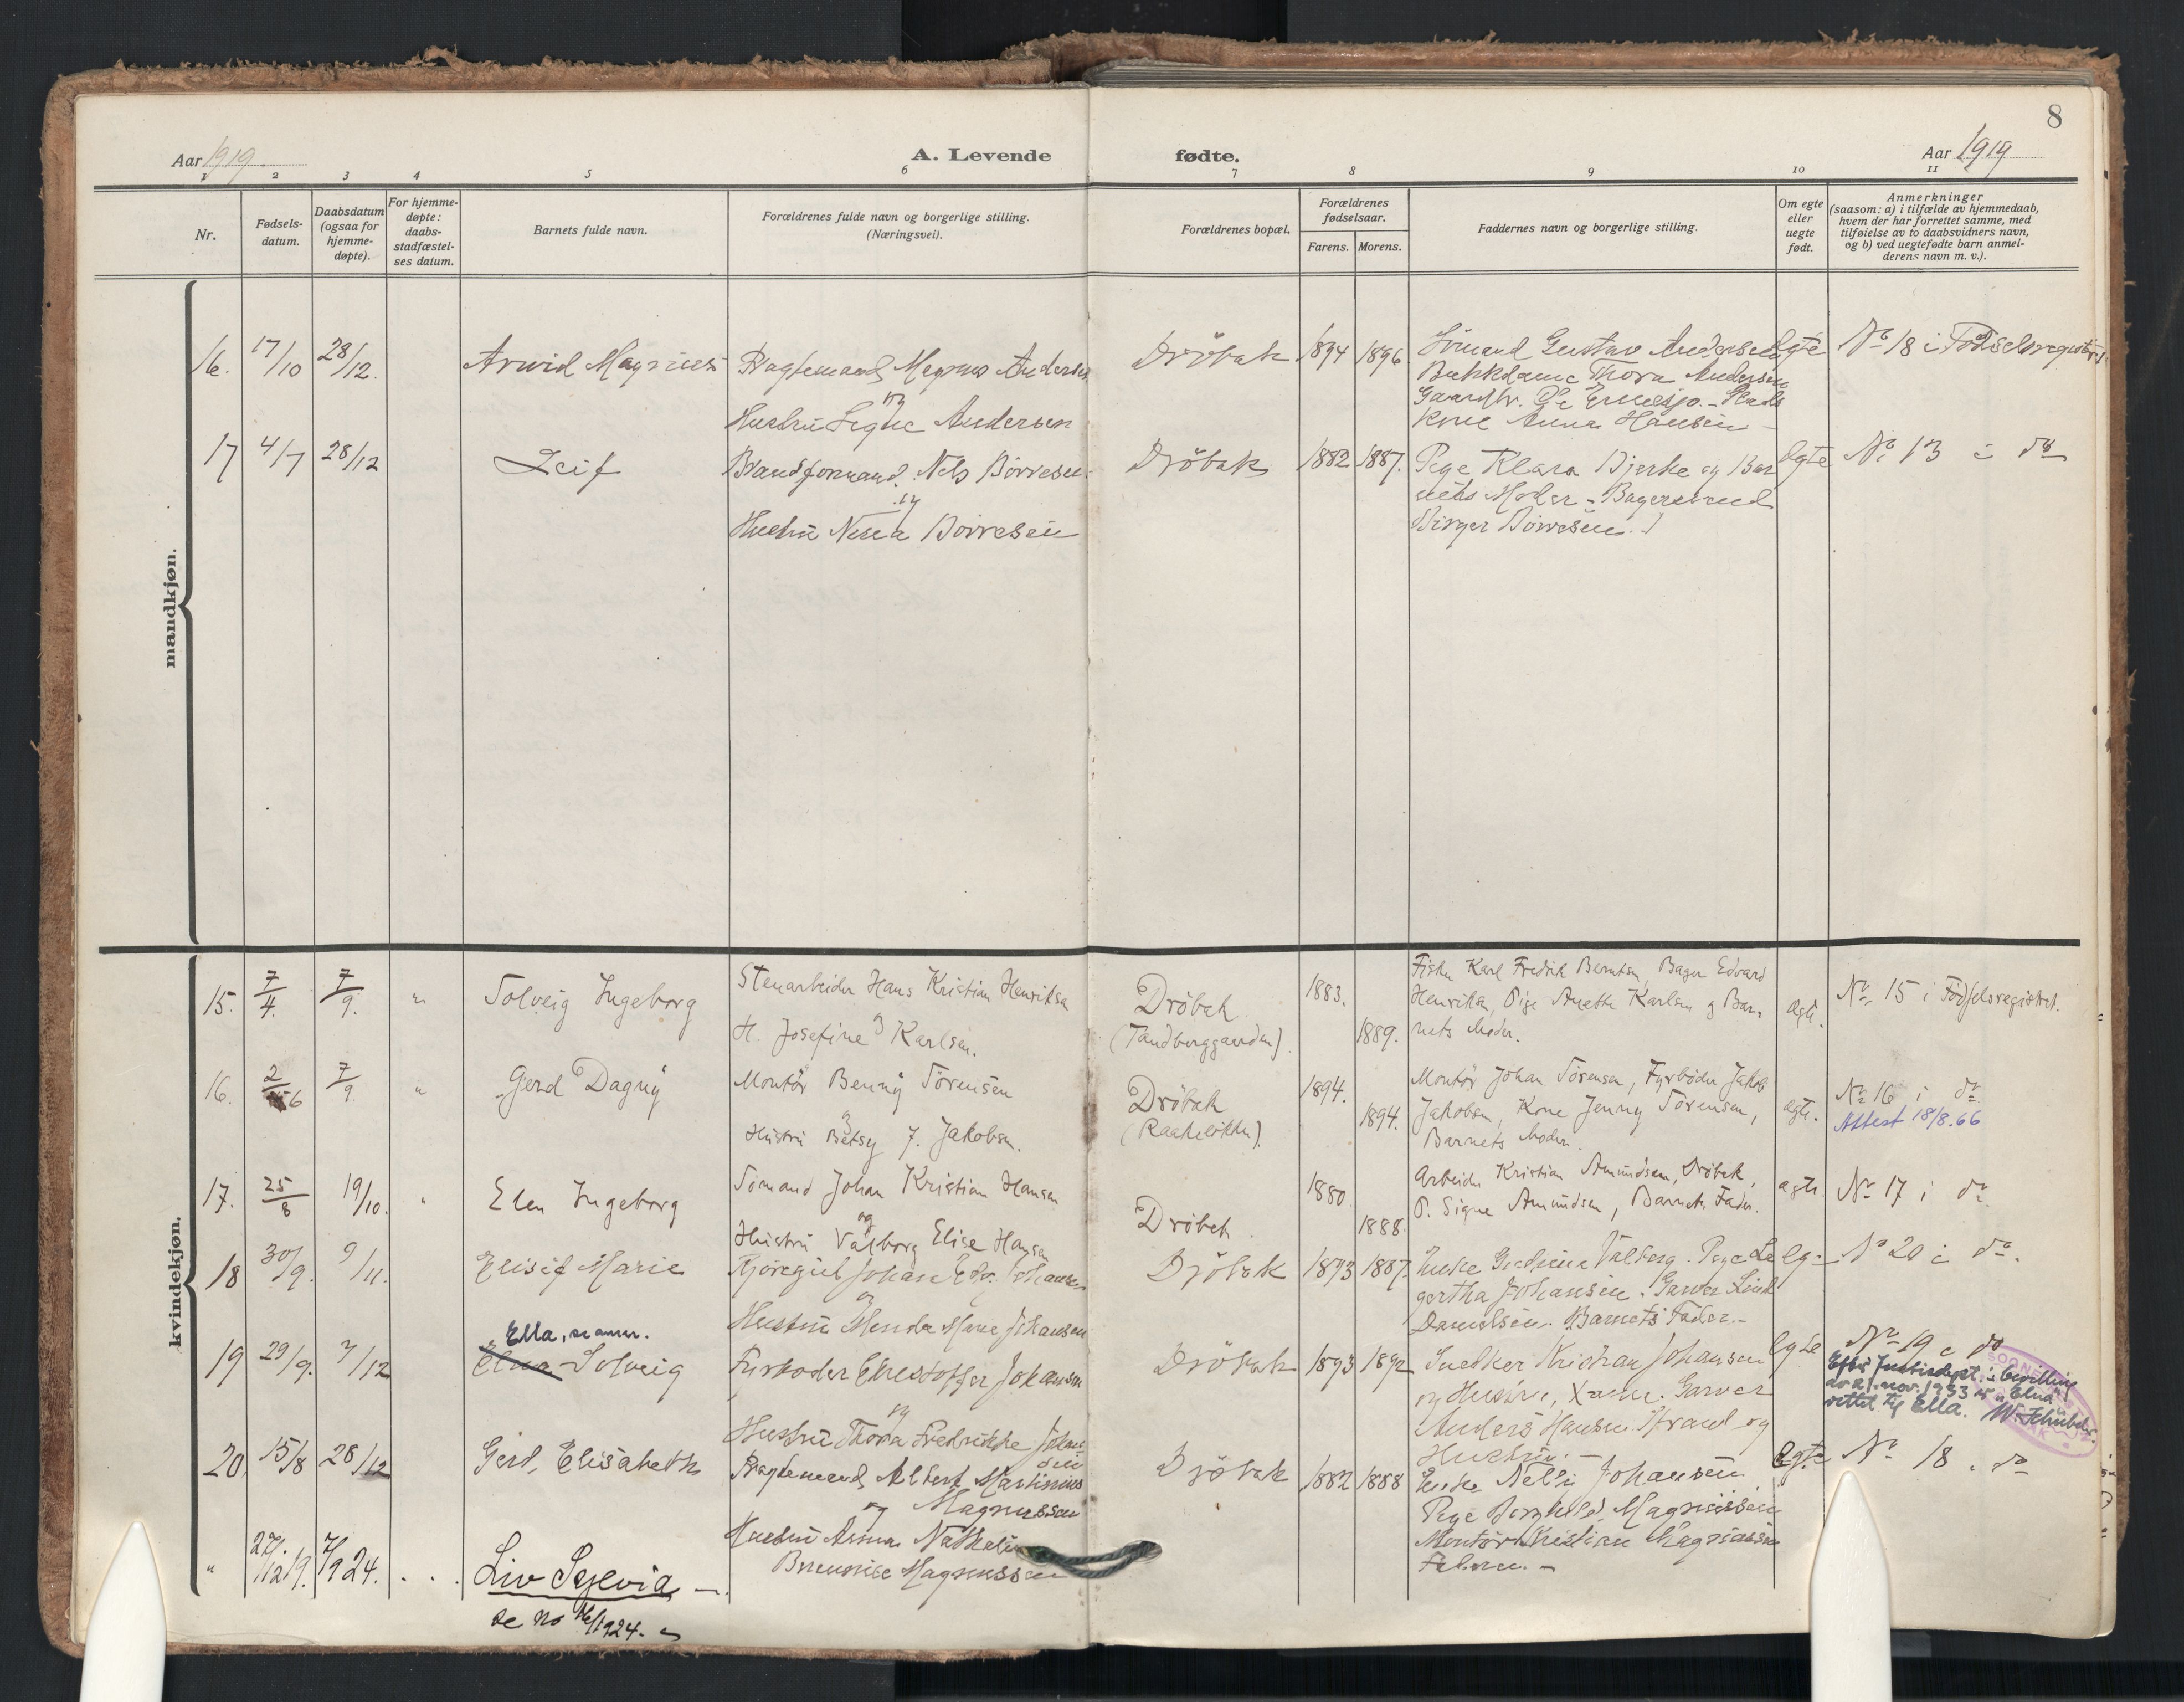 8
Aar 1919.
A. Levende
fødte.
Aar 1919
1 2 3 4 5 6 7 8 9 10 11
Nr.
Fødsels-
datum.
Daabsdatum
(ogsaa for
hjemme-
døpte).
For hjemme-
døpte:
daabs-
stadfæstel-
ses datum.
Barnets fulde navn.
Forældrenes fulde navn og borgerlige stilling.
(Næringsvei).
Forældrenes bopæl.
Forældrenes
fødselsaar.
Farens. Morens.
Faddernes navn og borgerlige stilling.
Om egte
eller
uegte
født.
Anmerkninger
(saasom: a) i tilfælde av hjemmedaab,
hvem der har forrettet samme, med
tilføielse av to daabsvidners navn,
og b) ved uegtefødte barn anmel-
derens navn m. v.).
mandkjøn.
16. 17/10 28/12.
Arvid Magnus
Magnus Andersen
og
Hustru Signe Andersen
Dröbak
1894 1896
Sömand Gustav Andersen
Thora Andersen
Kone Anna Hansen
Egte
No 18 i Fødselsregistr.
17 4/7 28/12
Leif
Brandformand Nels Börresen
og
Hustru Börresen
Dröbak
1882 1887.
Pige Klara Bjerke og Bar
nets Moder - Bagersvend
Birger Börresen.
Egte
No 13 i do
kvindekjøn.
15. 7/4. 7/9. "
Solveig Ingeborg
Stenarbeider Hans Kristian Henriksen
og
H. Josefine Karlsen.
Dröbak
(Tandberggaarden).
1883.
1889.
Fisker Karl Fredrik Berntsen, Bager Edvard
Henriksen, Pige Anette Karlsen og Bar-
nets Moder.
Egte.
No 15 i Födselsregistret.
16. 2/6 7/9 "
Gerd Dagny
Montör Benny Sörensen
og
Hustru Betsy J. Jakobsen.
Dröbak
1894.
1894.
Montör Johan Sörensen, Fyrböder Jakob
Jakobsen, Kone Jenny Sörensen,
Barnets Moder.
egte.
No 16 i do
Attest 18/8.66
17. 25/8 19/10. "
Elen Ingeborg
Sömand Johan Kristian Hansen
og
Hustru Valborg Elise Hansen
Dröbak.
1880
1888.
Arbeider Kristian Amundsen, Dröbak,
P. Signe Amundsen, Barnets Fader.
egte.
No 17 i do
18 30/9. 9/11.
Elisif Marie
Johan Johansen
og
Hustru Marie Johansen
Dröbak
1893 1887.
gertha Johansen. Garver
Danielsen. Barnets Fader. -
No 20 i do.
19 29/9. 7/12
"Ella, se anm.
Elna Solveig
Fyrboder Christoffer Johansen
og
Hustru Thora Fredrikke Johan-
sen
Dröbak
1893 1892
Snedker Kristian Johansen
og Hustru,
Anders Hansen og
Hustru. -
Egte
No 19 i do
Efter Justisdept.s bevilling
av 21. nov. 1933 er "Elna"
rettet til Ella.
20. 15/8 28/12
Gerd, Elisabeth
Albert Martinius
og Magnussen
Hustru Anna
Magnussen
Dröbak
1882 1888
Nelly Johansen
Pige Magnussen
Montör Kristian Magnussen
Egte
No 18 i do
" 27/12 19. 7/9 24. . .
Liv Sylvia -.
se no 16/1924.